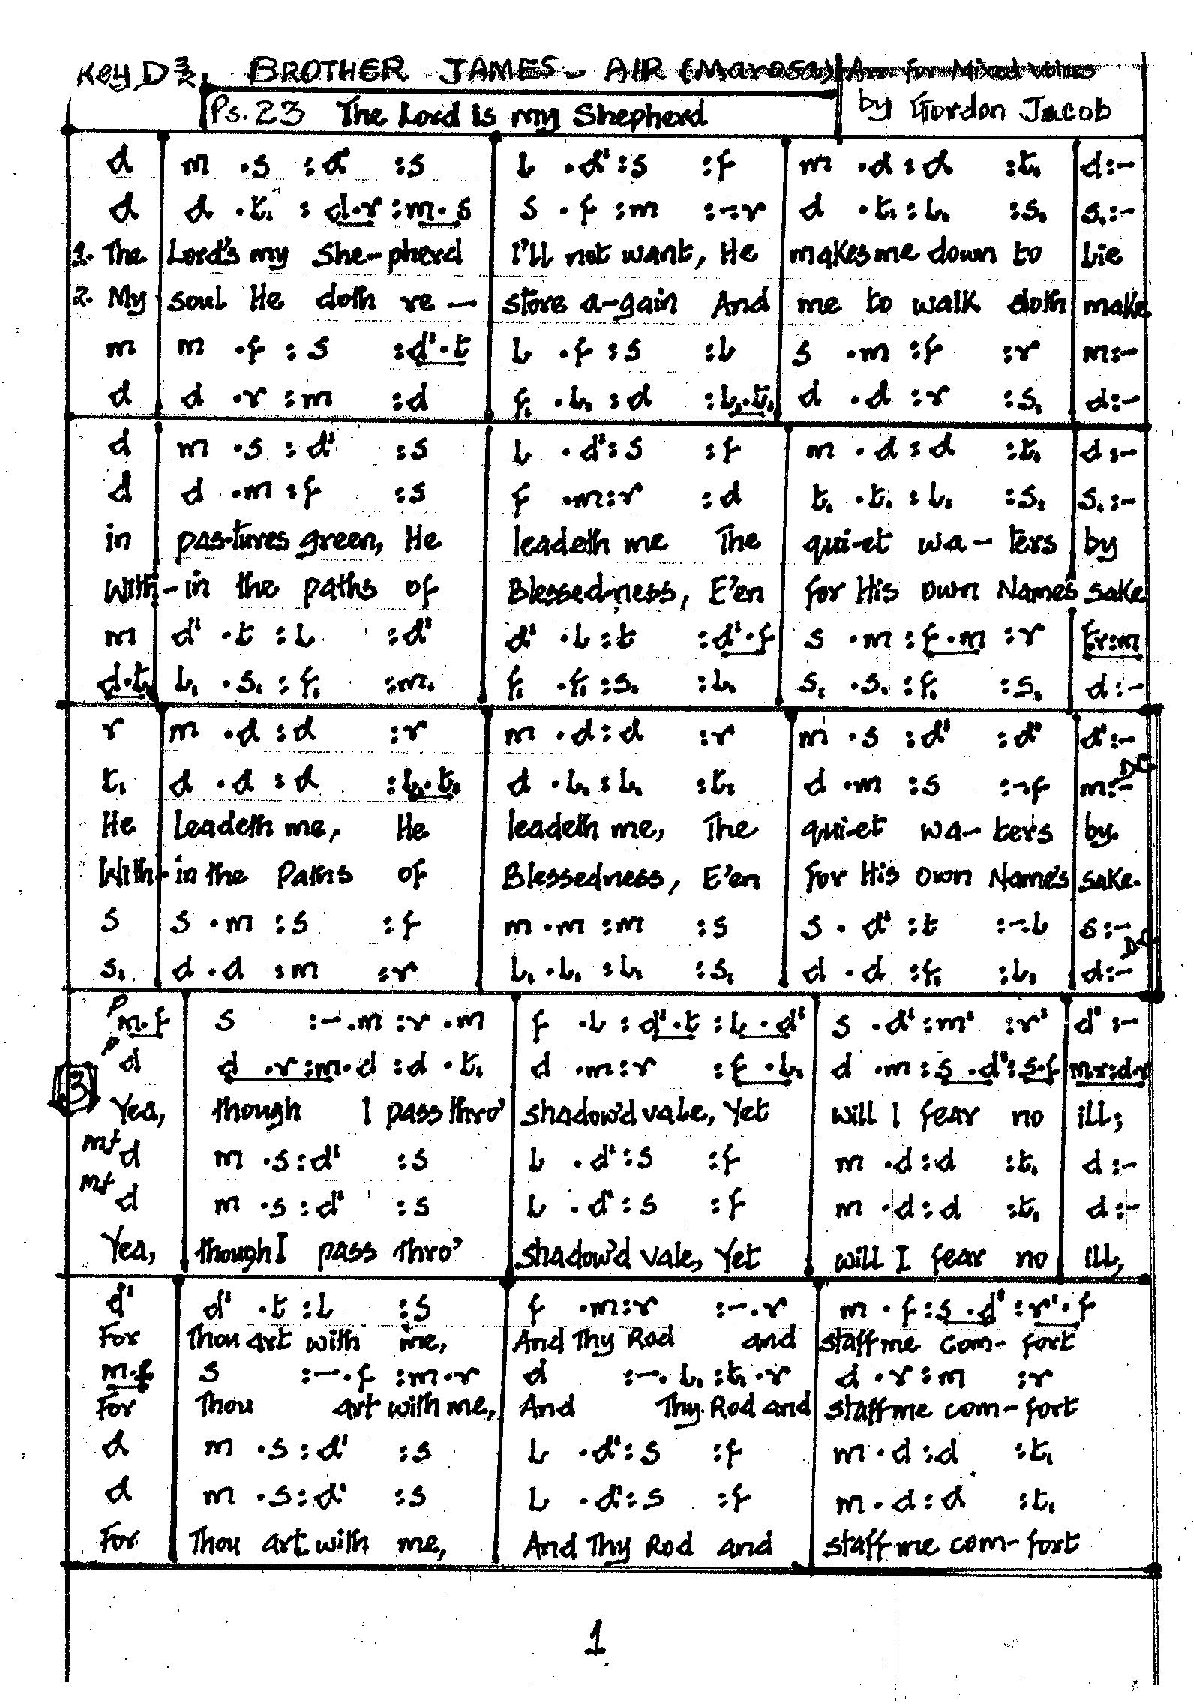 Key D 3/2 BROTHER JAMES - AIR (Marosa) Arr. for Mixed voices
Ps. 23 The Lord is my Shepherd by Gordon Jacob
d | m .s :d' :s | l .d':s :f | m .d :d :t, | d:-
d | d .t, :d.r :m.s | s .f :m :-.r | d .t,:l, :s, | s,:-
1. The | Lord's my She-pherd | I'll not want, He | makes me down to | lie
2. My | soul He doth re - | store a-gain And | me to walk doth | make
m | m .f :s :d'.t | l .f :s :l | s .m :f :r | m:-
d | d .r :m :d | f, .l, :d :l,.t, | d .d :r :s, | d:-
d | m .s :d' :s | l .d':s :f | m .d :d :t, | d:-
d | d .m :f :s | f .m:r :d | t, .t, :l, :s, | s,:-
in | pas-tures green, He | leadeth me The | qui-et wa-ters | by
With- | in the paths of | Blessed-ness, E'en | for His own Name's | sake
m | d' .t :l :d' | d' .l :t :d'.f | s .m :f.m :r | f.r:m
d.t, | l, .s, :f, :m, | f, .f, :s, :l, | s, .s, :f, :s, | d:-
r | m .d :d :r | m .d :d :r | m .s :d' :d' | d':-
D.C.
t, | d .d :d :l,.t, | d .l, :l, :t, | d .m :s :-.f | m:-
He | leadeth me, He | leadeth me, The | qui-et wa-ters | by.
With- | in the Paths of | Blessedness, E'en | for His own Name's | sake.
s | s .m :s :f | m .m :m :s | s .d' :t :-.l | s:-
D.C.
s, | d .d :m :r | l, .l, :l, :s, | d .d :f, :l, | d:-
p m.f | s :-.m :r .m | f .l :d'.t :l.d' | s .d':m' :r' | d':-
p d | d .r:m.d :d .t, | d .m:r :f.l, | d .m:s.d':s.f | m.r:d.r
3 Yea, | though I pass thro' | shadow'd vale, Yet | will I fear no | ill;
mf d | m .s:d' :s | l .d':s :f | m .d:d :t, | d:-
mf d | m .s:d' :s | l .d':s :f | m .d:d :t, | d:-
Yea, | though I pass thro' | shadow'd vale, Yet | will I fear no | ill,
d' | d' .t :l :s | f .m:r :-.r | m .f:s.d':r'.f
For | Thou art with me, | And Thy Rod and | staff me com-fort
m.f | s :-.f :m.r | d :-.l, :t,.r | d .r:m :r
For | Thou art with me, | And Thy Rod and | staff me com-fort
d | m .s:d' :s | l .d':s :f | m.d:d :t,
d | m .s:d' :s | l .d':s :f | m.d:d :t,
For | Thou art with me, | And Thy Rod and | staff me com-fort
1